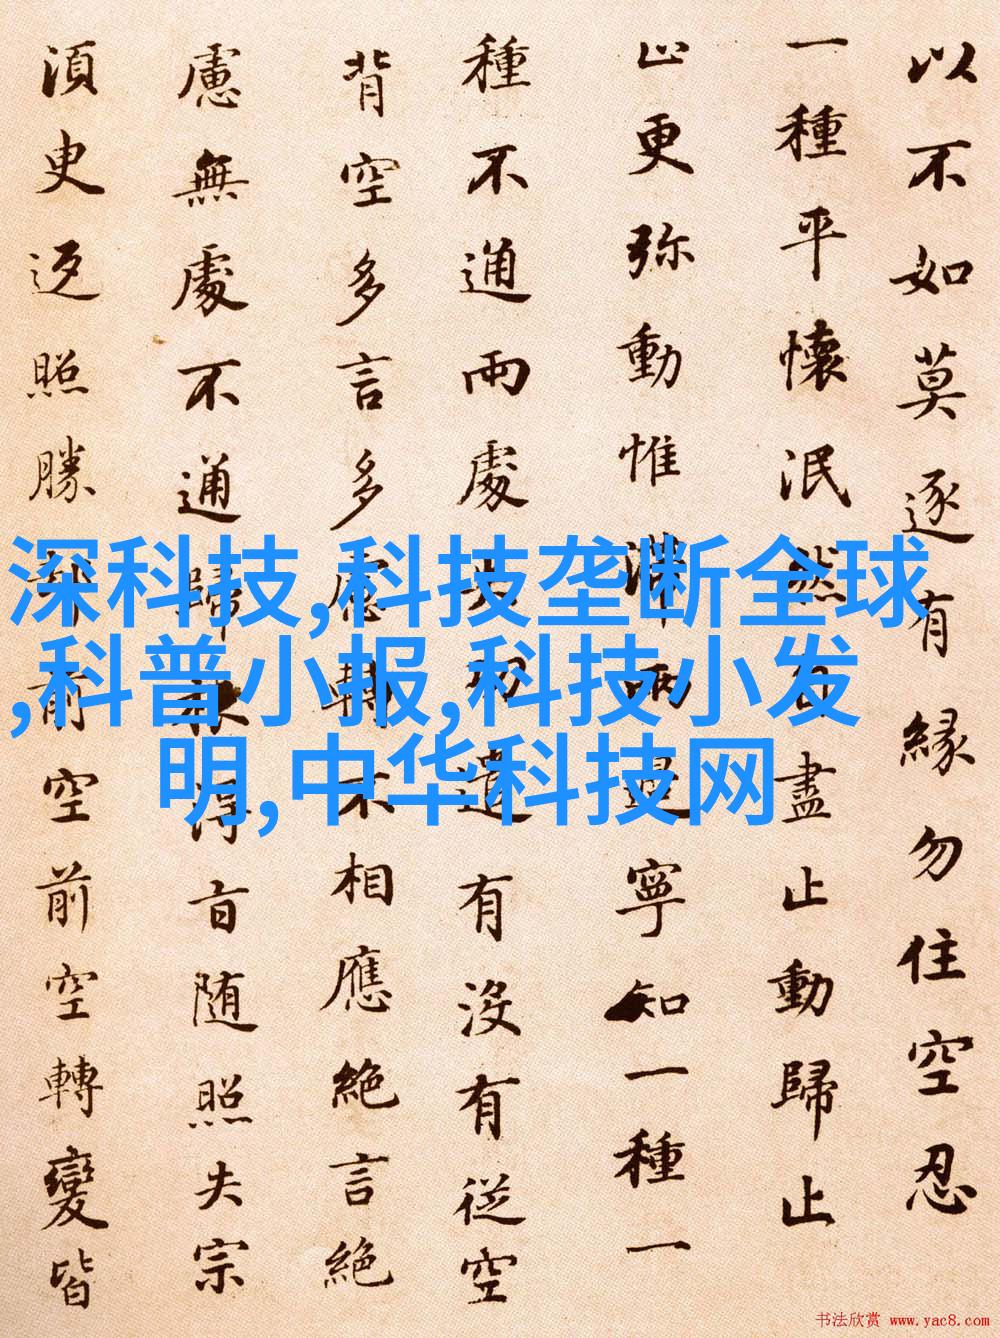 以不如莫逐有縁勿住空忍
一種平懷泯然自盡止動歸止
止更弥動惟滞兩邊寧知一種一
種不通兩處失功遣有没有従空
背空多言多慮轉不相應絶言絶
慮無處不通歸根得旨随照失宗
須臾返照勝却前空前空轉變皆
深科技,科技垄断全球
,科普小报,科技小发
明,中华科技网
书法欣赏 www.yac8.com